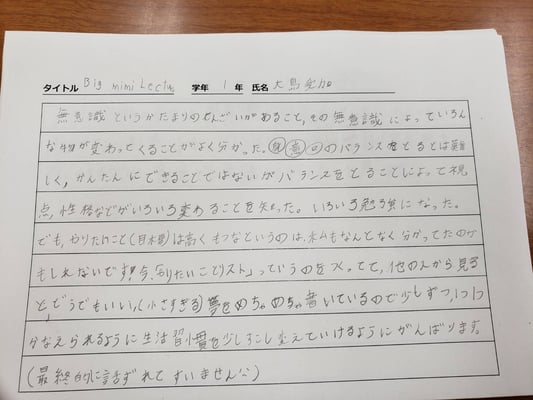 タイトル Big mini Lecture 学年 1年 氏名 大島
無意識というかたまりのそんざいがあること,その無意識によっていろん
な物が変わってくることがよく分かった。のバランスをとるとは難
しく,かんたんにできることではないがバランスをとることによって視
点,性格などがいろいろ変わることを知った。いろいろ勉強になった。
でも,やりたいこと(目標)は高くもつなというのは,私もなんとなく分かってたのか
もしれないです!今,「やりたいことリスト」っていうのをつくってて,他の人から見る
と,どうでもいい,(小さすぎる)夢をめちゃめちゃ書いているので少しずつ,1つ1つ
かなえられるように生活習慣を少しすこし変えていけるようにがんばります。
(最終的に話ずれてすいません